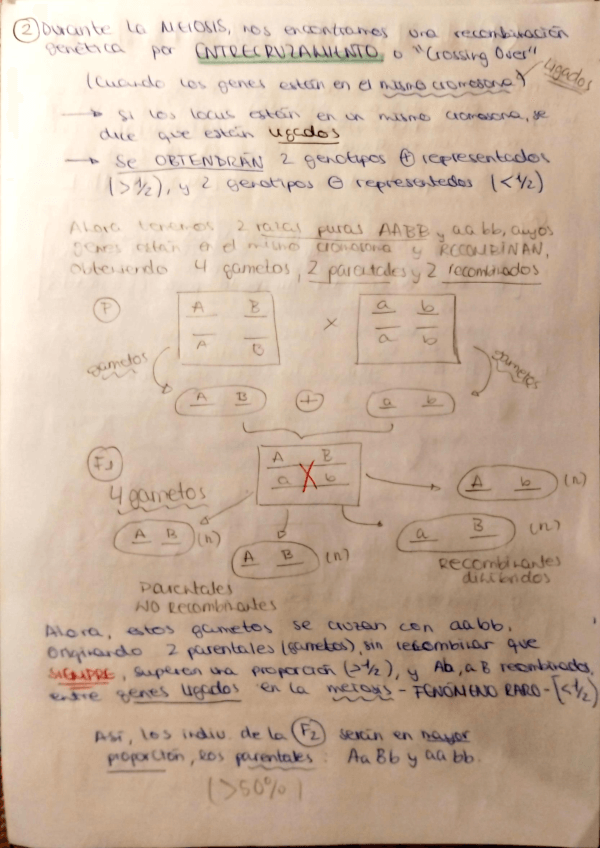 ② Durante la MEIOSIS, nos encontramos una recombinación
genética por ENTRECRUZAMIENTO o "Crossing Over"
(Cuando los genes están en el mismo cromosoma) ligados
→ Si los locus están en un mismo cromosoma, se
dice que están ligados
→ Se OBTENDRÁN 2 genotipos ⊕ representados
(>1/2), y 2 genotipos ⊖ representados (<1/2)
Ahora tenemos 2 razas puras AABB y aabb, cuyos
genes están en el mismo cromosoma y RECOMBINAN,
obteniendo 4 gametos, 2 parentales y 2 recombinados
P A B X a b
A B a b
gametos gametos
A B + a b
F1 A B
a X b
4 gametos A b (n)
A B (n) A B (n) a B (n)
Parentales
NO Recombinantes
Recombinantes
dihíbridos
Ahora, estos gametos se cruzan con aabb.
Originando 2 parentales (gametos), sin recombinar que
SIEMPRE, superan una proporción (>1/2), y Ab, aB recombinados,
entre genes ligados en la meiosis - FENÓMENO RARO - (<1/2)
Así, los indiv. de la F2 serán en mayor
proporción, los parentales: AaBb y aabb.
(>50%)